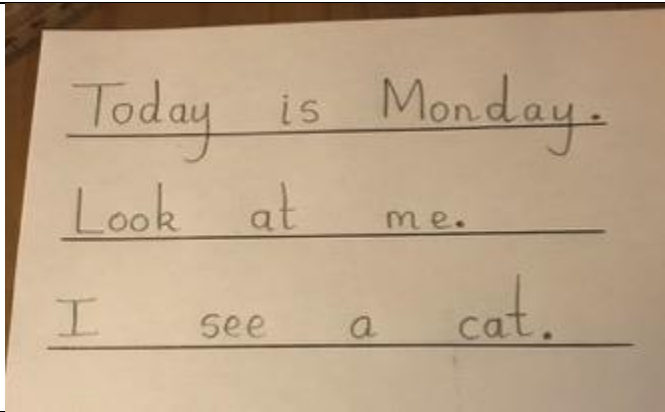 Today is Monday.
Look at me.
I see a cat.